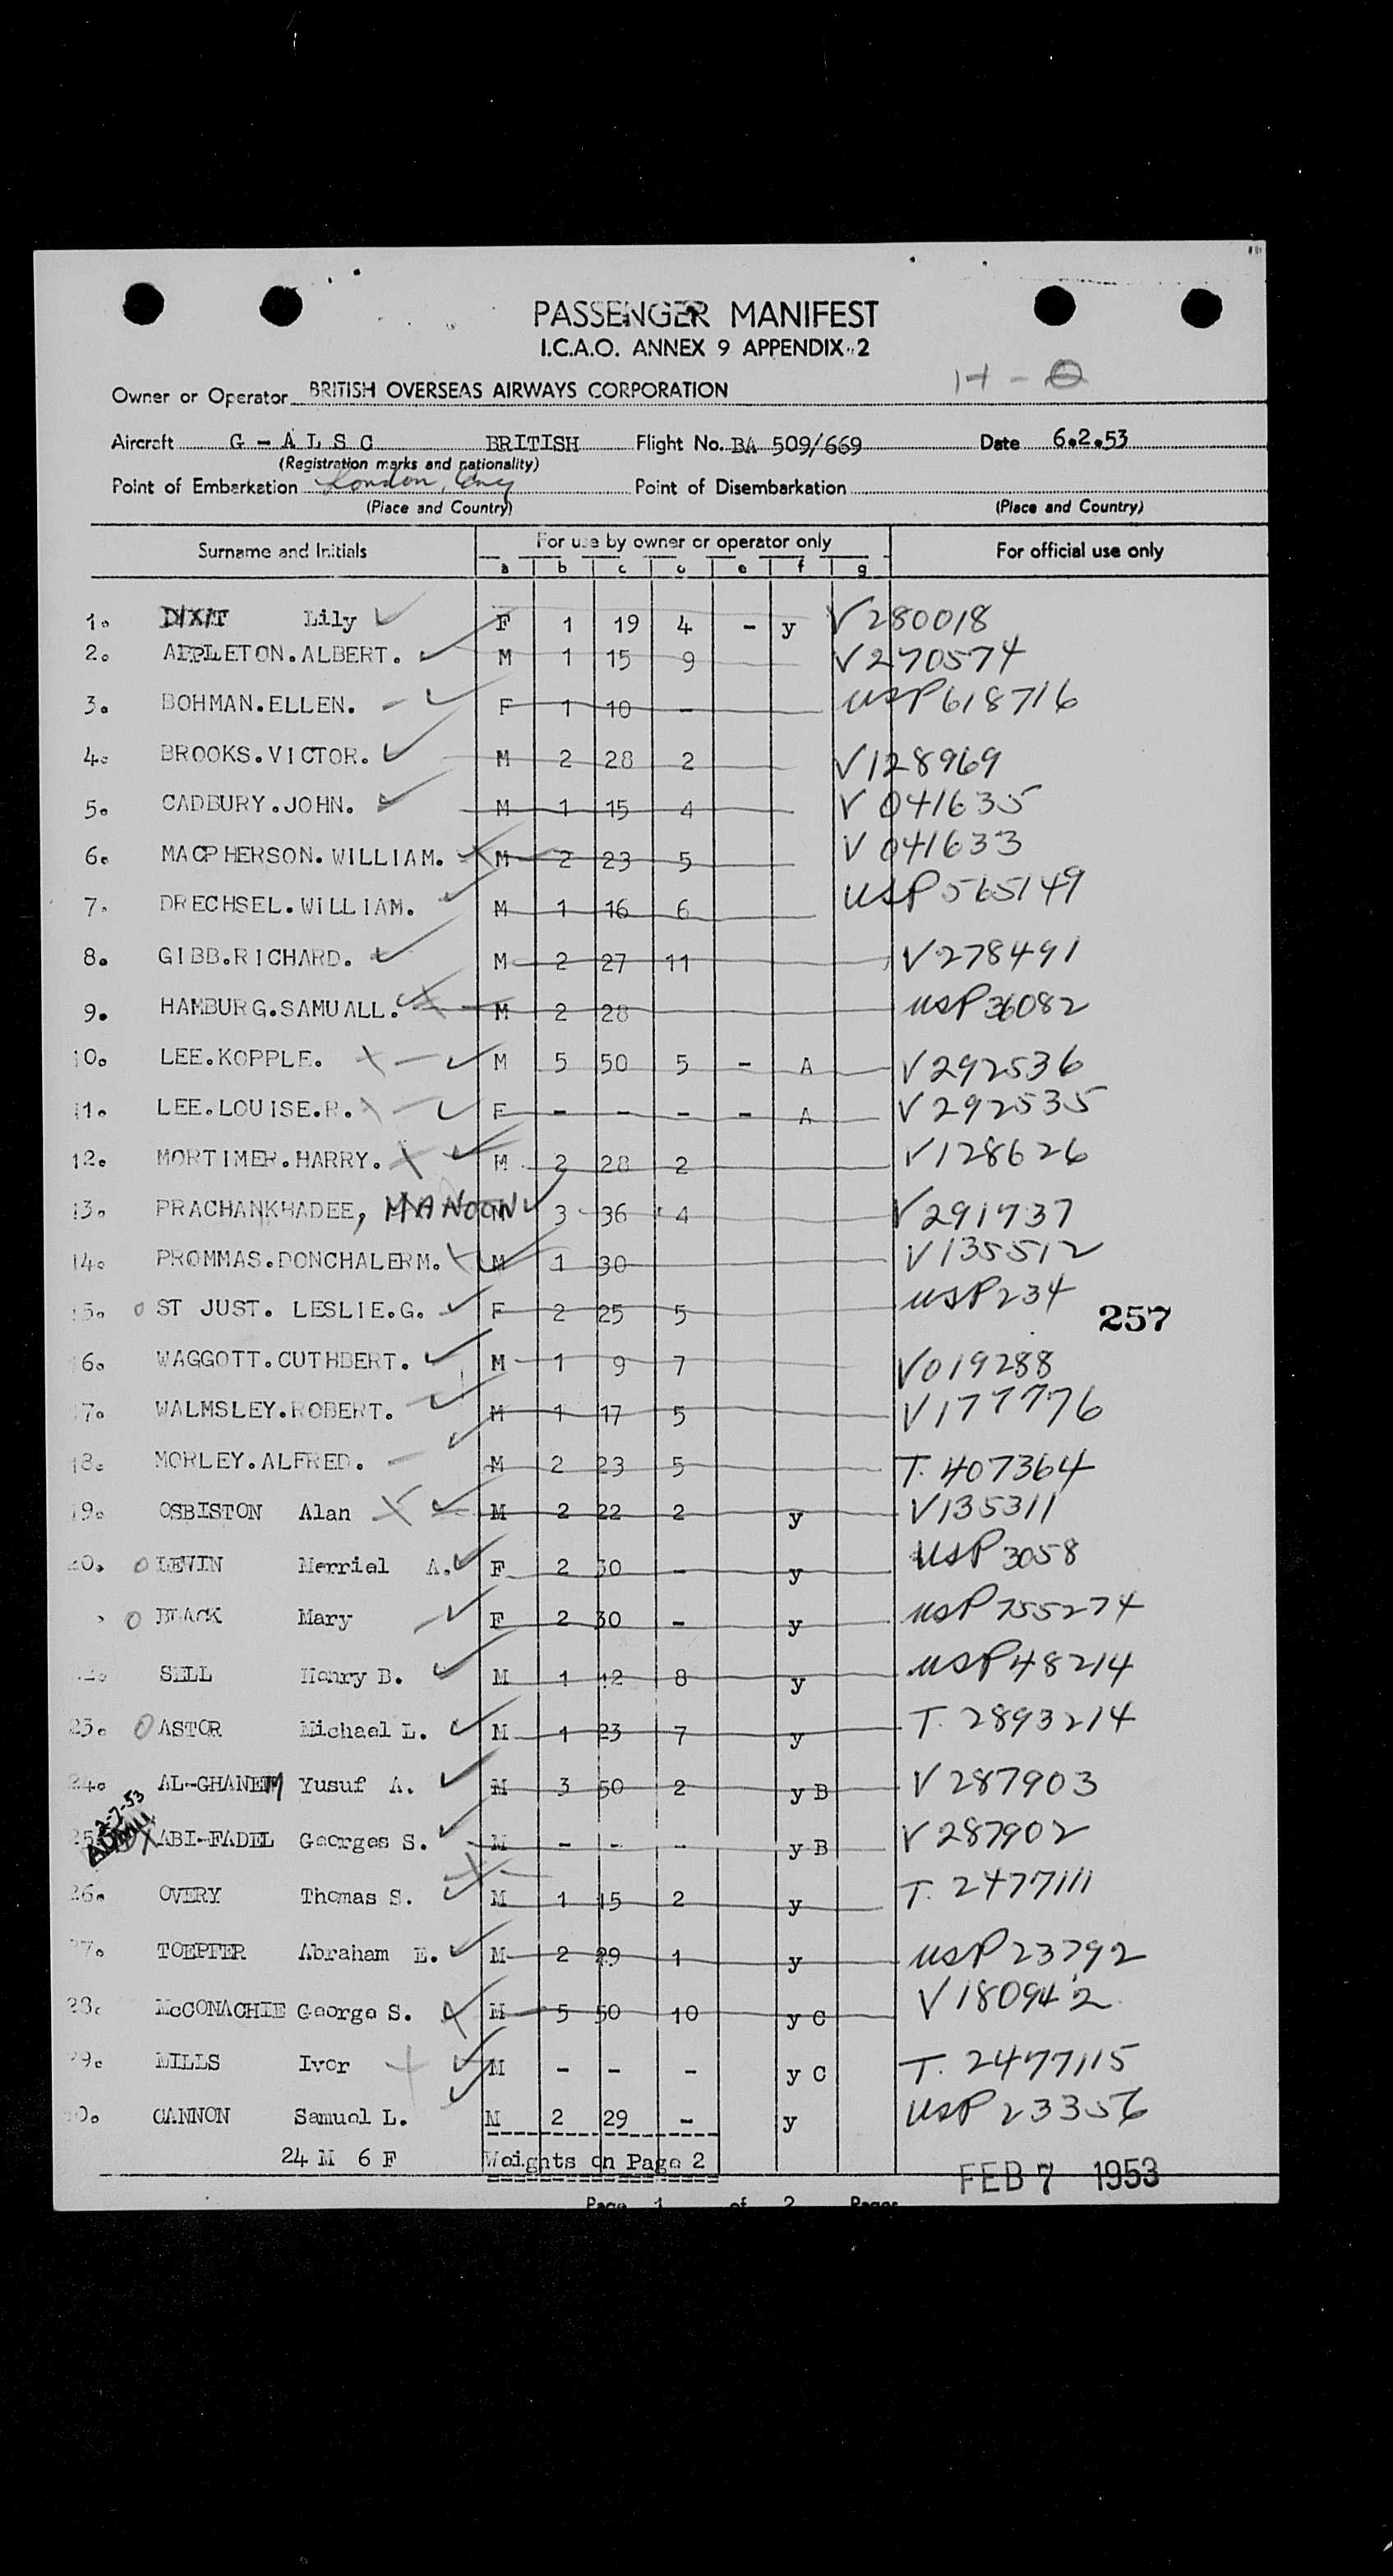 PASSENGER MANIFEST
I.C.A.O. ANNEX 9 APPENDIX 2
H - O
Owner or Operator BRITISH OVERSEAS AIRWAYS CORPORATION
Aircraft G - A L S C BRITISH Flight No. BA 509/669 Date 6.2.53
(Registration marks and nationality)
Point of Embarkation London, Eng Point of Disembarkation
(Place and Country) (Place and Country)
Surname and Initials For use by owner or operator only For official use only
a b c d e f g
1. Lily F 1 19 4 - y V280018
2. APPLETON.ALBERT. M 1 15 9 V270574
3. BOHMAN.ELLEN. F 1 10 - USP618716
4. BROOKS.VICTOR. M 2 28 2 V128969
5. CADBURY.JOHN. M 1 15 4 V041635
6. MACPHERSON.WILLIAM. M 2 23 5 V041633
7. DRECHSEL.WILLIAM. M 1 16 6 USP565149
8. GIBB.RICHARD. M 2 27 11 V278491
9. HAMBURG.SAMUALL. M 2 28 USP36082
10. LEE.KOPPLE. M 5 50 5 - A V292536
11. LEE.LOUISE.R. F - - - - A V292535
12. MORTIMER.HARRY. M 2 28 2 V128626
13. PRACHANKHADEE, MANOON M 3 36 4 V291737
14. PROMMAS.DONCHALERM. M 1 30 V135512
15. O ST JUST. LESLIE.G. F 2 25 5 USP234
257
16. WAGGOTT.CUTHBERT. M 1 9 7 V019288
17. WALMSLEY.ROBERT. M 1 17 5 V177776
18. MORLEY.ALFRED. M 2 23 5 T.407364
19. OSBISTON Alan M 2 22 2 y V135311
20. O LEVIN Merriel A. F 2 30 - y USP3058
O BLACK Mary F 2 30 - y USP755274
SELL Henry B. M 1 12 8 y USP48214
23. O ASTOR Michael L. M 1 23 7 y T.2893214
24. AL-GHANEM Yusuf A. M 3 50 2 y B V287903
2-7-53
25. X ABI-FADEL Georges S. M - - - y B V287902
26. OVERY Thomas S. M 1 15 2 y T.2477111
27. TOEPFER Abraham E. M 2 29 1 y USP23792
28. McCONACHIE George S. M 5 50 10 y C V180942
29. MILLS Ivor M - - - y C T.2477115
30. CANNON Samuel L. M 2 29 - y USP23356
24 M 6 F Weights on Page 2
FEB 7 1953
Page 1 of 2 Pages